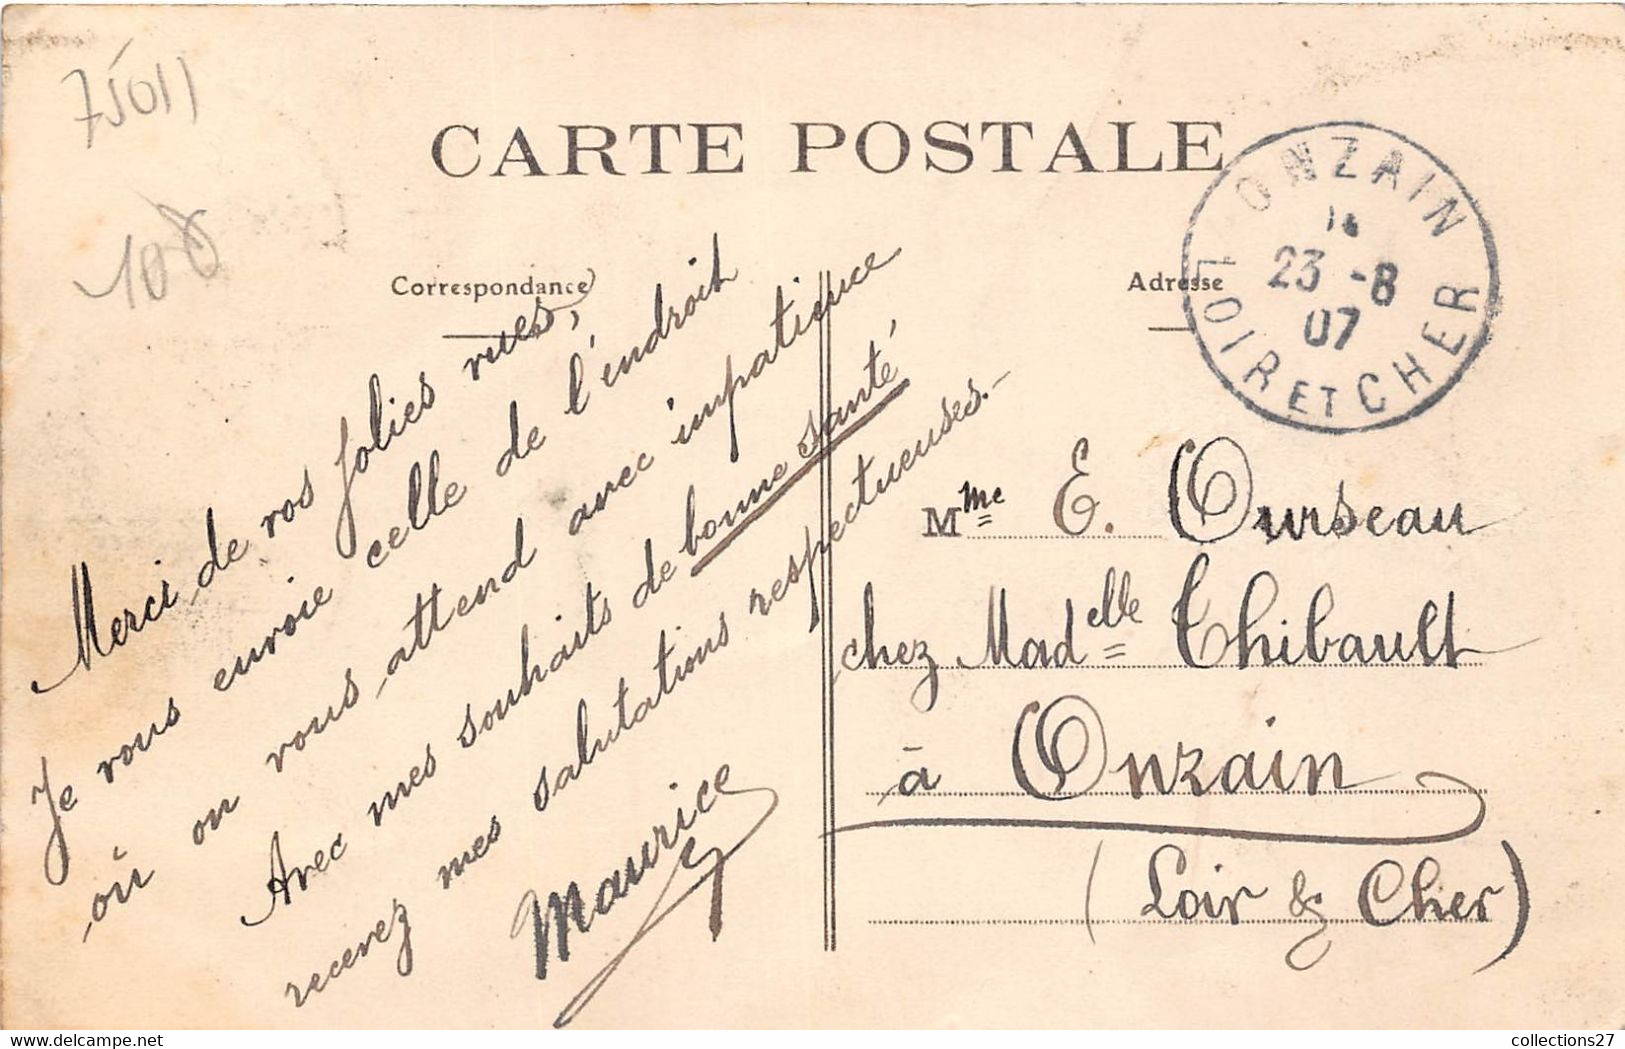 75011
108
CARTE POSTALE
Correspondance
Adresse
ONZAIN
23 -8
07
LOIR ET CHER
Merci de vos jolies vues,
Je vous envoie celle de l'endroit
où on vous attend avec impatience
Avec mes souhaits de bonne santé
recevez mes salutations respectueuses.-
Maurice
Mme E. Ourseau
chez Madelle Thibault
à Onzain
(Loir & Cher)
collections27